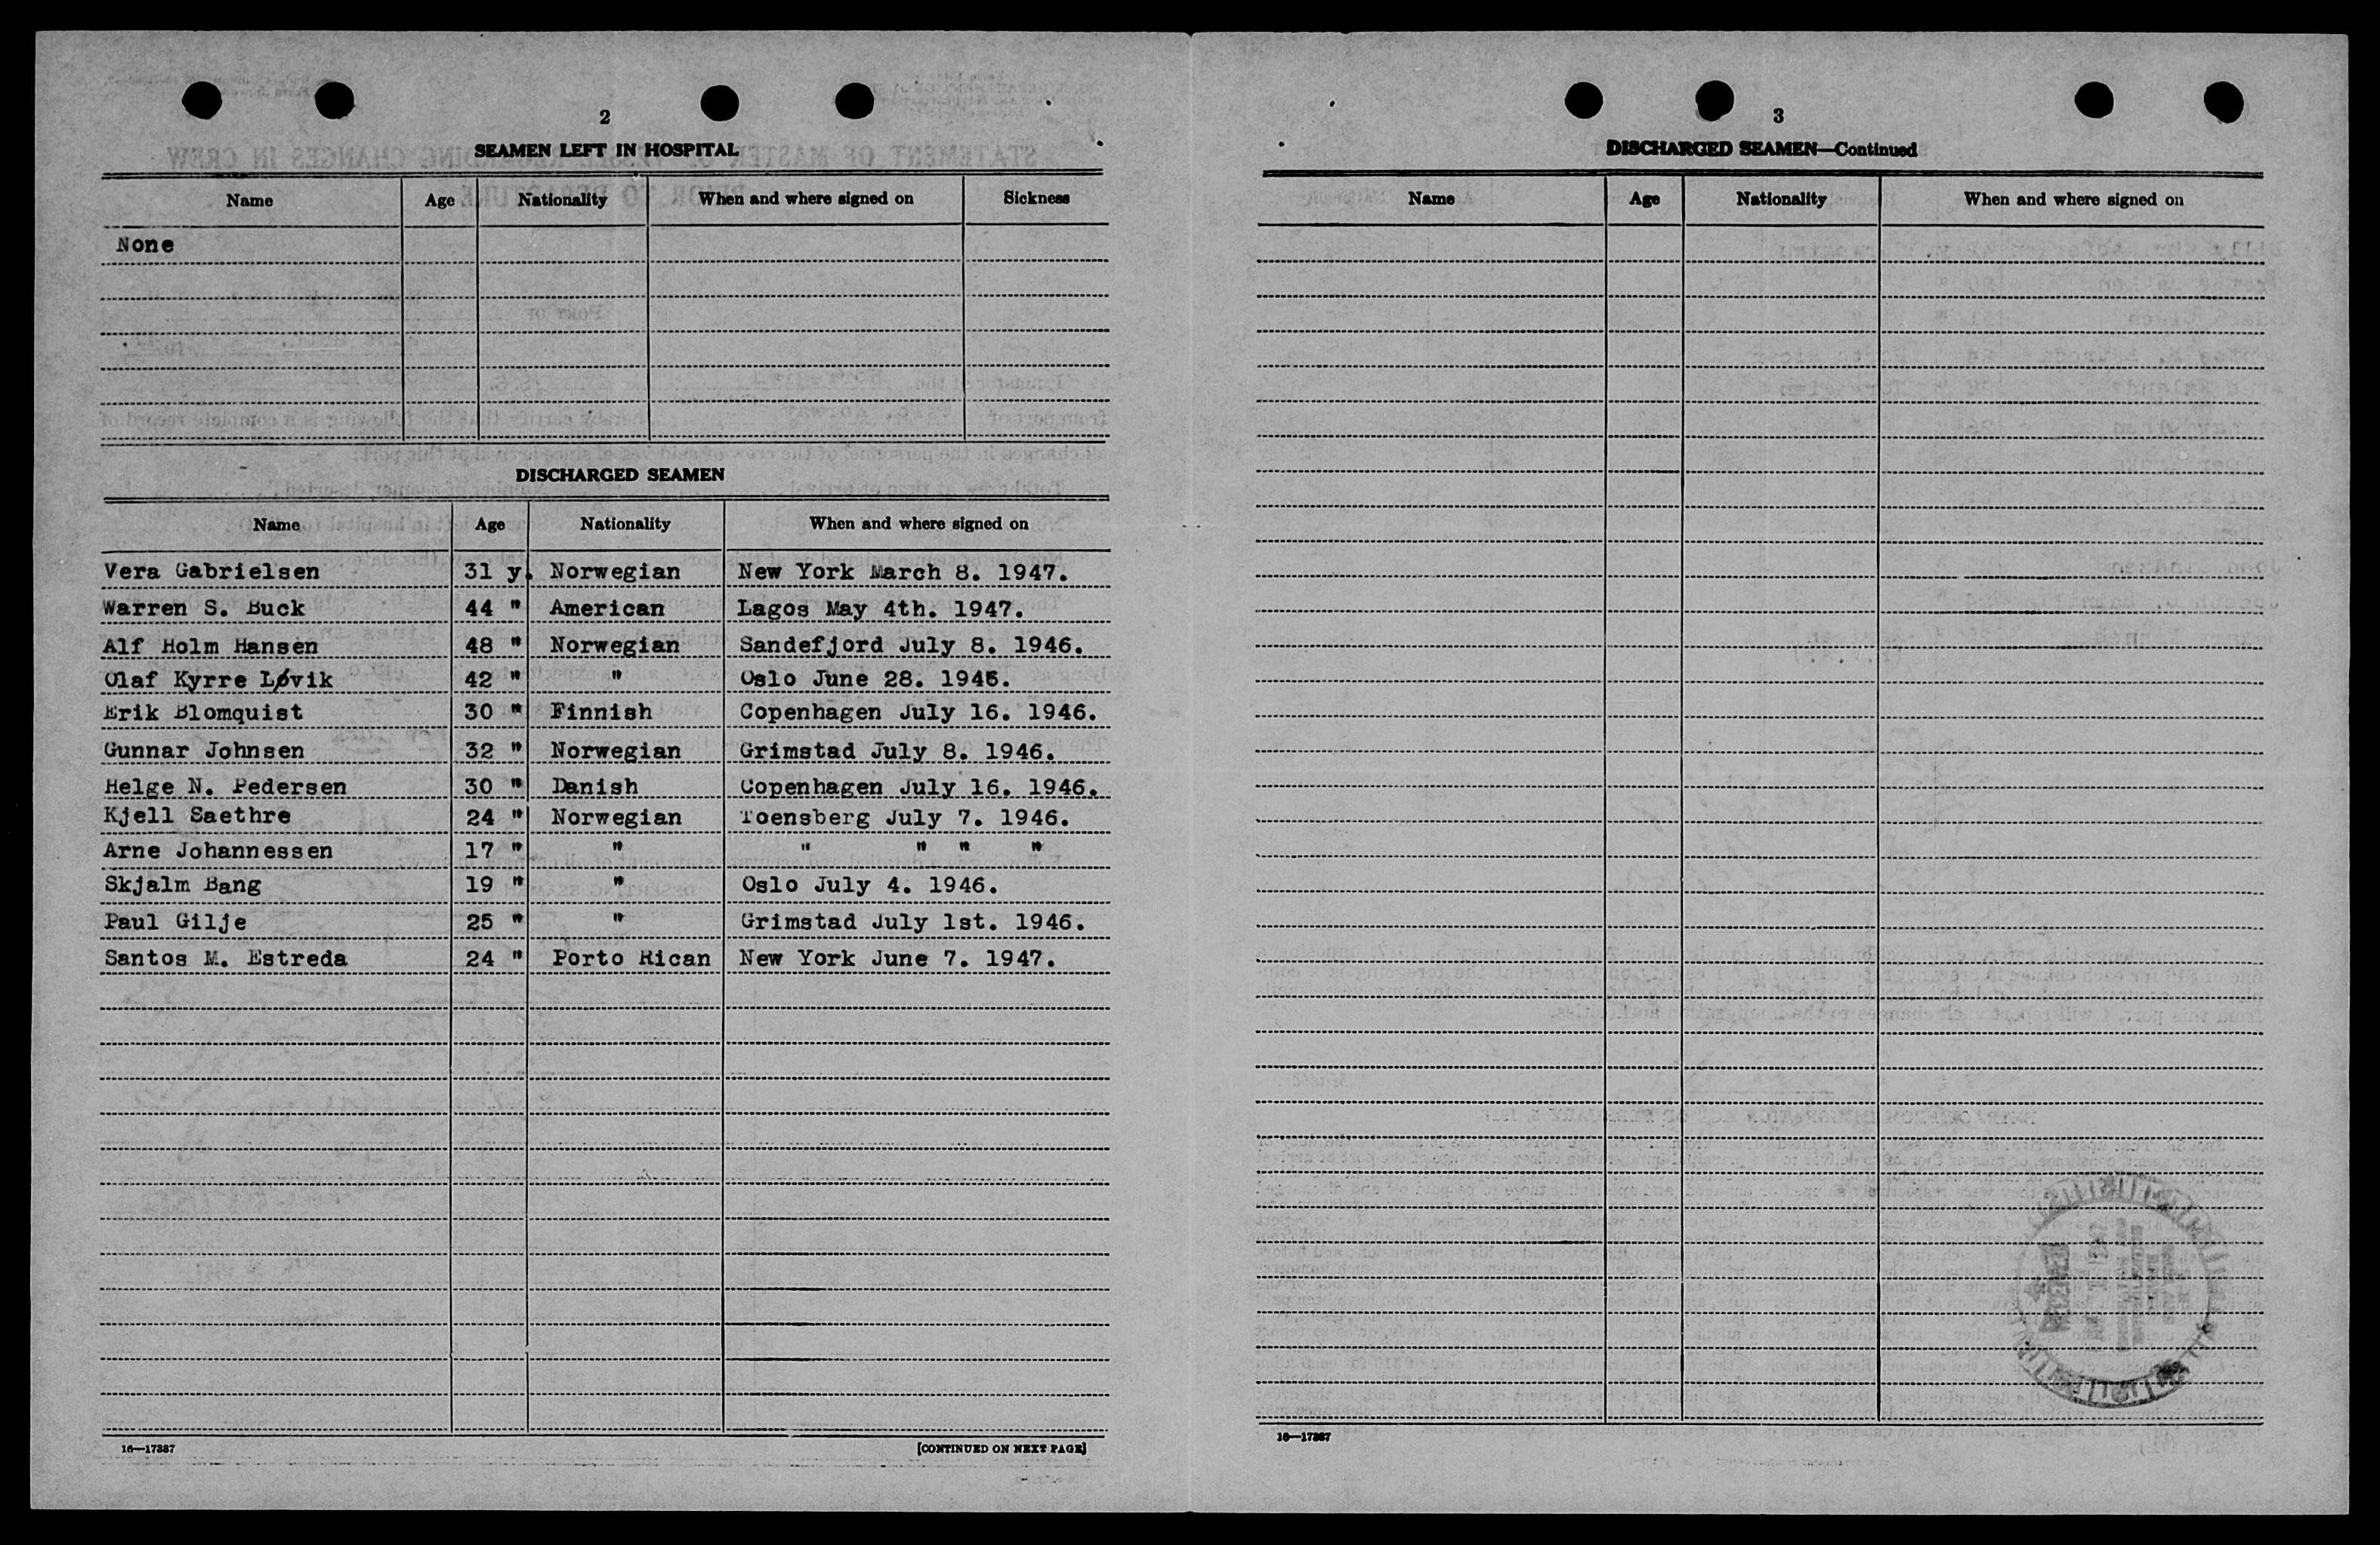 2
SEAMEN LEFT IN HOSPITAL
Name Age Nationality When and where signed on Sickness
None
DISCHARGED SEAMEN
Name Age Nationality When and where signed on
Vera Gabrielsen 31 y. Norwegian New York March 8. 1947.
Warren S. Buck 44 " American Lagos May 4th. 1947.
Alf Holm Hansen 48 " Norwegian Sandefjord July 8. 1946.
Olaf Kyrre Løvik 42 " " Oslo June 28. 1946.
Erik Blomquist 30 " Finnish Copenhagen July 16. 1946.
Gunnar Johnsen 32 " Norwegian Grimstad July 8. 1946.
Helge N. Pedersen 30 " Danish Copenhagen July 16. 1946.
Kjell Saethre 24 " Norwegian Toensberg July 7. 1946.
Arne Johannessen 17 " " " " " "
Skjalm Bang 19 " " Oslo July 4. 1946.
Paul Gilje 25 " " Grimstad July 1st. 1946.
Santos M. Estreda 24 " Porto Rican New York June 7. 1947.
16—17387
[CONTINUED ON NEXT PAGE]
3
DISCHARGED SEAMEN—Continued
Name Age Nationality When and where signed on
16—17387